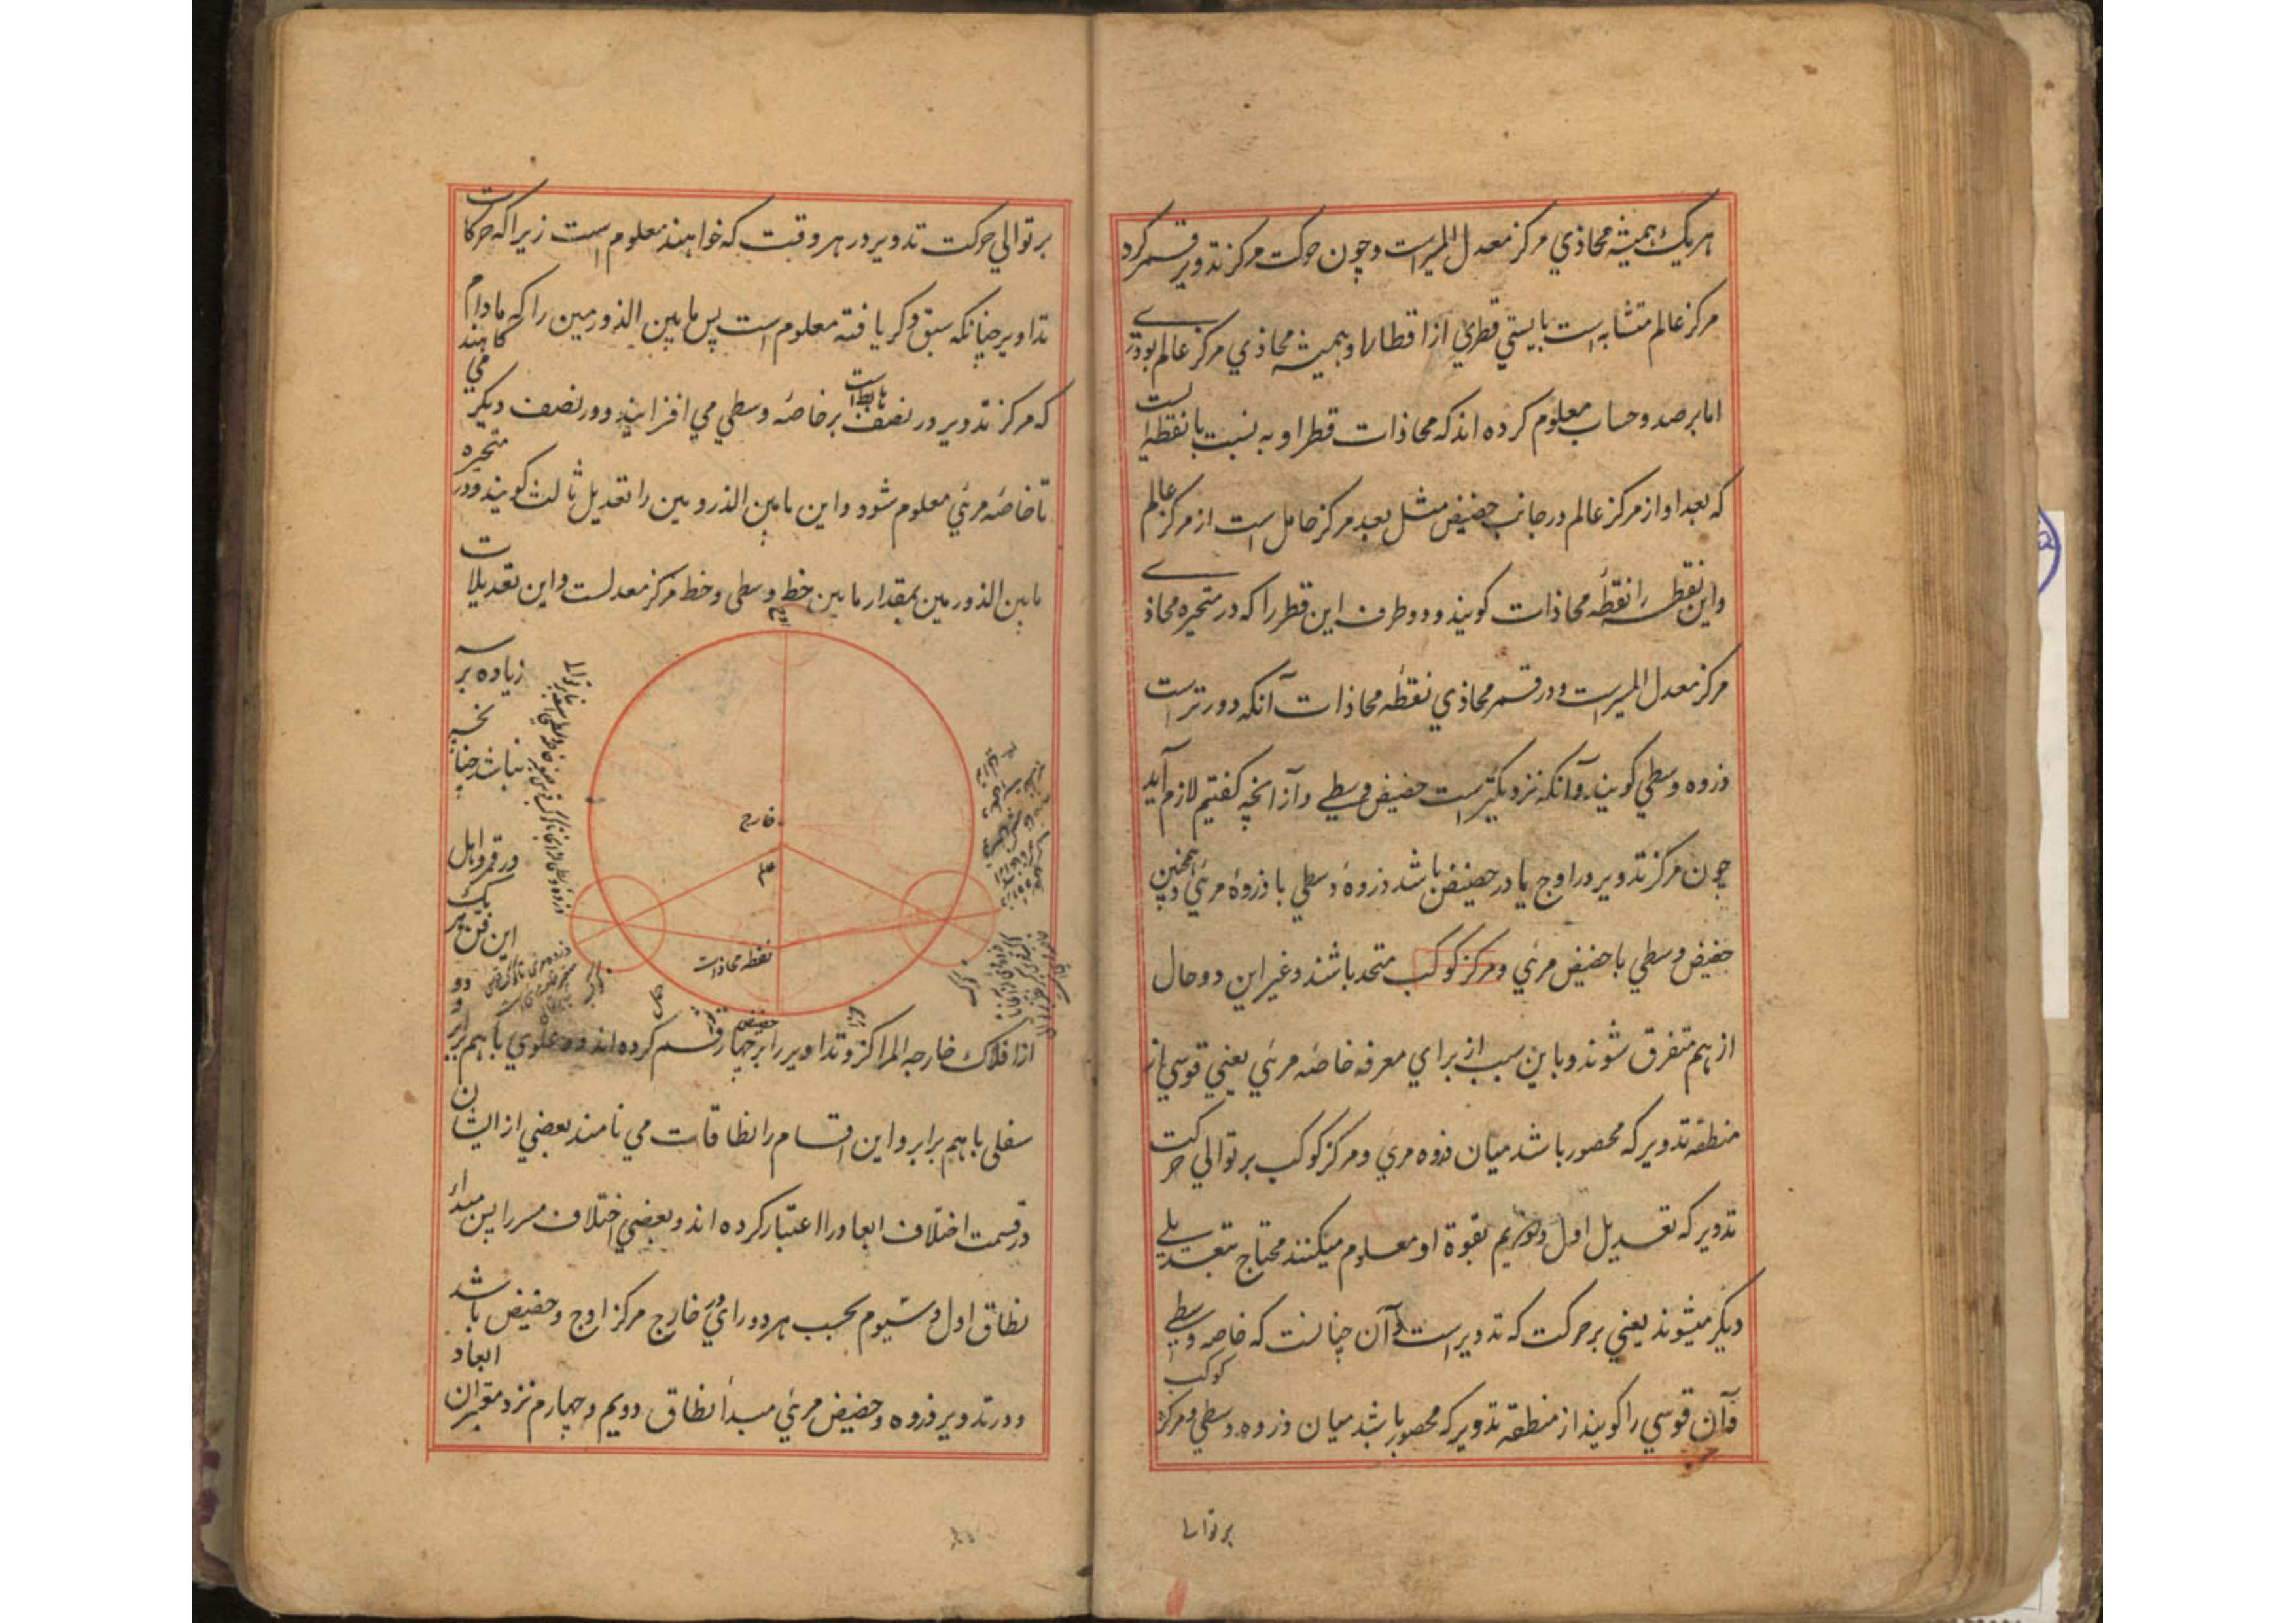 هریک همیشه محاذی مرکز معدل المسیر است و چون حرکت مرکز تدویر قمر کرد
مرکز عالم متشابه است بایستی قطری از اقطار او همیشه محاذی مرکز عالم بودی
اما برصد و حساب معلوم کرده اند که محاذات قطر او به نسبت با نقطه ایست
که بعد او از مرکز عالم در جانب حضیض مثل بعد مرکز حامل است از مرکز عالم
و این نقطه را نقطه محاذات کویند و دو طرف این قطر را که در متحیره محاذی
مرکز معدل المسیر است و در قمر محاذی نقطه محاذات آنکه دورتر است
ذروه وسطی کویند و آنکه نزدیکتر است حضیض وسطی و از آنچه کفتیم لازم آید
چون مرکز تدویر در اوج یا در حضیض باشد ذروهٔ وسطی با ذروهٔ مرئی و همچنین
حضیض وسطی با حضیض مرئی و مرکز کوکب متحد باشند و غیر این دو حال
از هم متفرق شوند و باین سبب از برای معرفه خاصه مرئی یعنی قوسی از
منطقه تدویر که محصور باشد میان ذروه مرئی و مرکز کوکب بر توالی حرکت
تدویر که تعدیل اول و دویم بقوة او معلوم میکنند محتاج بتعدیلی
دیکر میشوند یعنی بر حرکت که تدویر است و آن چنانست که خاصه وسطی
و آن قوسی را کویند از منطقه تدویر که محصور باشد میان ذروه وسطی و مرکز کوکب
بر توالی
بر توالی حرکت تدویر در هر وقت که خواهند معلوم است زیرا که حرکات
تداویر چنانکه سبق ذکر یافته معلوم است پس مابین الذروتین را که مادام
که مرکز تدویر در نصف هابط است بر خاصه وسطی می افزایند و در نصف دیکر می کاهند
تا خاصه مرئی معلوم شود و این مابین الذروتین را تعدیل ثالث کویند و در متحیره
مابین الذروتین بمقدار مابین خط وسطی و خط مرکز معدلست و این تعدیلات
اوج
زیاده بر سه
نباشد چنانچه
خارج
در قمر و اهل
عالم
این فن هر یک
نقطه محاذات
حضیض
از افلاک خارجه المراکز و تداویر را بر چهار قسم کرده اند دو علوی با هم برابر و دو
سفلی با هم برابر و این اقسام را نطاقات می نامند بعضی از ایشان
در قسمت اختلاف ابعاد را اعتبار کرده اند و بعضی اختلاف مسیر را پس مبداء
نطاق اول و سیوم بحسب هر دو رای در خارج مرکز اوج و حضیض باشد
و در تدویر ذروه و حضیض مرئی مبدأ نطاق دویم و چهارم نزد معتبران ابعاد